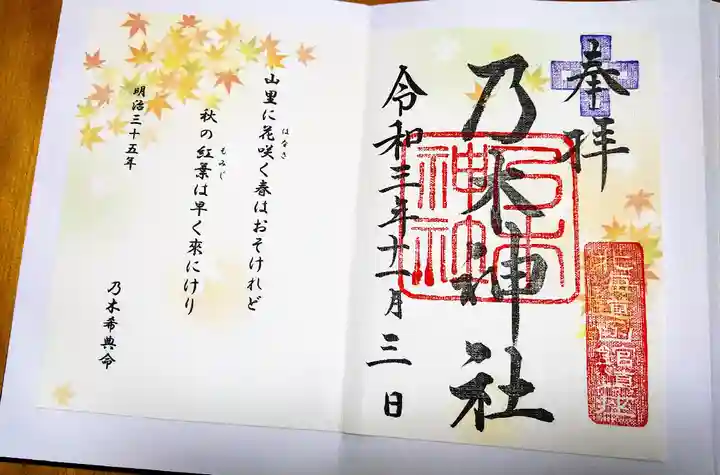 奉拝
乃木神社
令和三年十一月三日
山里に花咲く春はおそけれど
はなさ
秋の紅葉は早く來にけり
もみじ
明治三十五年
乃木希典命